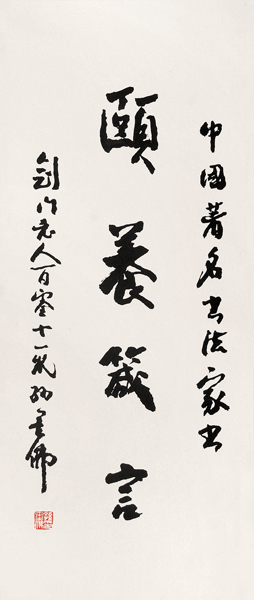 中國著名書法家書
頤養箴言
劍門老人百十一歲孫墨佛